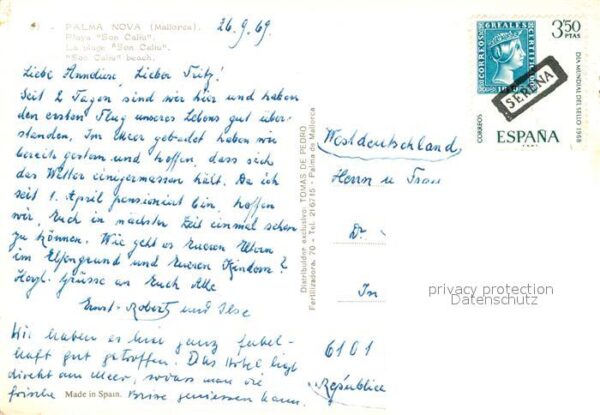 PALMA NOVA (Mallorca).
Playa "Son Caliu".
La plage "Son Caliu".
"Son Caliu" beach.
26.9.69.
Liebe Anneliese, Lieber Fritz!
Seit 2 Tagen sind wir hier und haben
den ersten Flug unseres Lebens gut über-
standen. Im Meer gebadet haben wir
bereits gestern und hoffen, dass sich
das Wetter einigermassen hält. Da ich
seit 1. April pensioniert bin, hoffen
wir, Euch in nächster Zeit einmal sehen
zu können. Wie geht es Eueren Eltern
im Elfengrund und Eueren Kindern?
Herzl. Grüsse an Euch Alle
Ernst-Robert und Ilse
Wir haben es hier ganz fabel-
haft gut getroffen. Das Hotel liegt
direkt am Meer, sodass man die
frische Brise geniessen kann.
Made in Spain.
Distribuidor exclusivo: TOMAS DE PEDRO
Fertilizadora, 70 - Tel. 216715 - Palma de Mallorca
CORREOS 6 REALES CERTIFDO
1850
SERENA
3,50
PTAS
DIA MUNDIAL DEL SELLO 1968
CORREOS
ESPAÑA
Westdeutschland
Herrn u Frau
Dr.
In
6101
privacy protection
Datenschutz